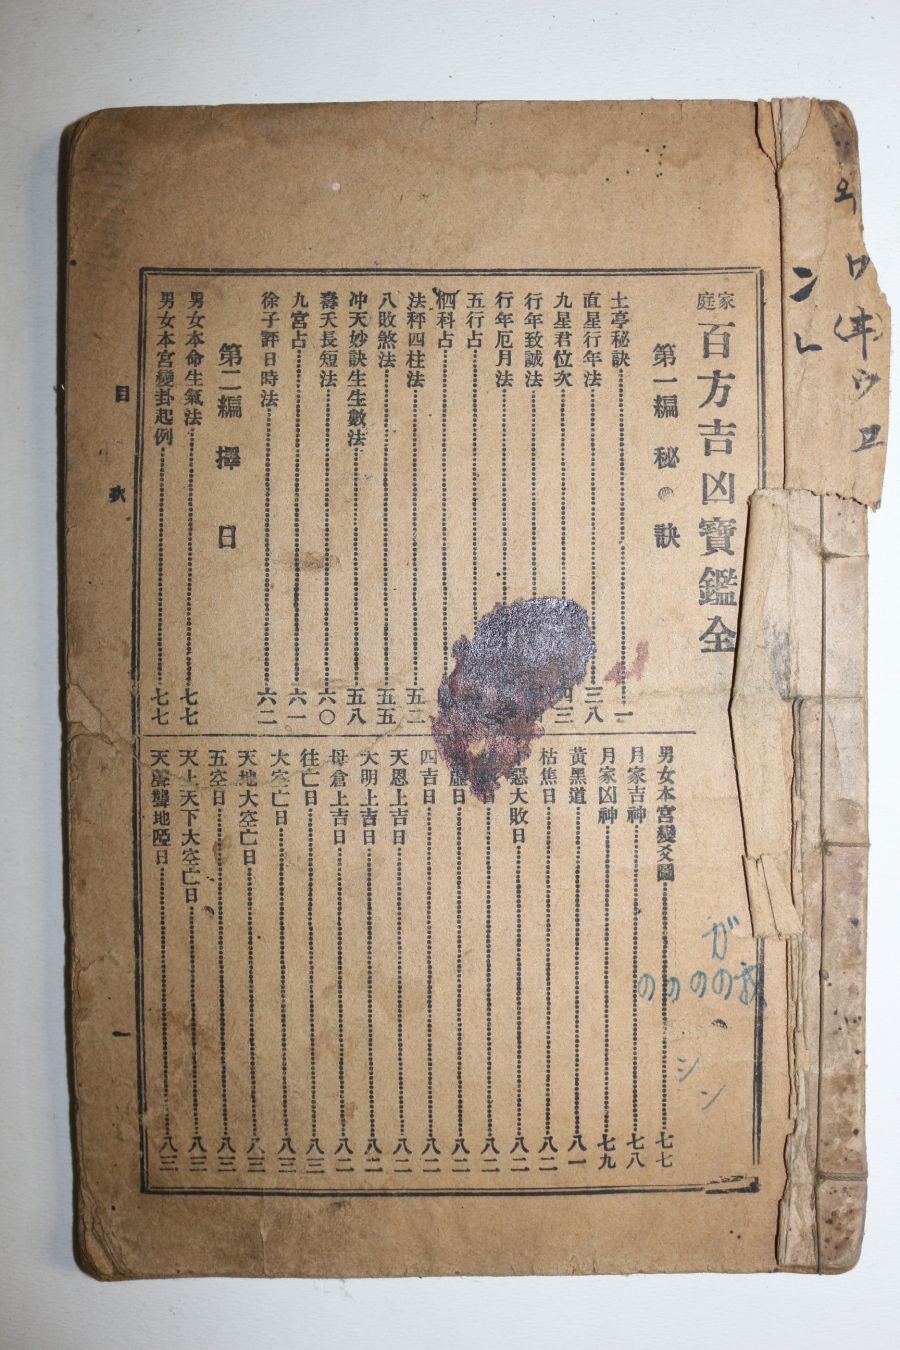 家庭 百方吉凶寶鑑全
第一編 秘 訣
土亭秘訣 一
直星行年法 三八
九星君位次 四三
行年致誠法
行年厄月法
五行占
柶科占
法秤四柱法 五二
八敗煞法 五五
冲天妙訣生生數法 五八
壽夭長短法 六〇
九宮占 六一
徐子評日時法 六二
第二編 擇 日
男女本命生氣法 七七
男女本宮變卦起例 七七
男女本宮變爻圖 七七
月家吉神 七八
月家凶神 七九
黃黑道 八一
枯焦日 八二
惡大敗日 八二
日 八二
虛日 八二
四吉日 八二
天恩上吉日 八二
大明上吉日 八二
母倉上吉日 八二
往亡日 八三
大空亡日 八三
天地大空亡日 八三
五空日 八三
天上天下大空亡日 八三
天聾地啞日 八三
目 次
一
ンレ
ワ
ウ
が
のののの
シン